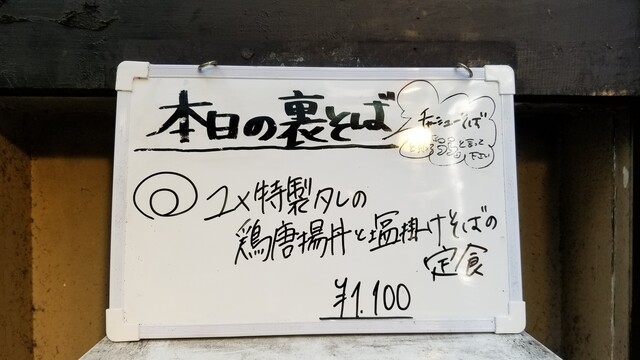 本日の裏そば
チャーシューそば
と言って
下さい
ユメ特製タレの
鶏唐揚丼と塩掛けそばの
定食
¥1.100